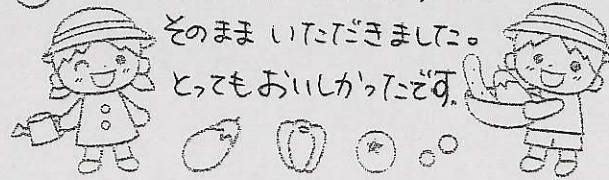 そのまま いただきました。
とっても おいしかったです。